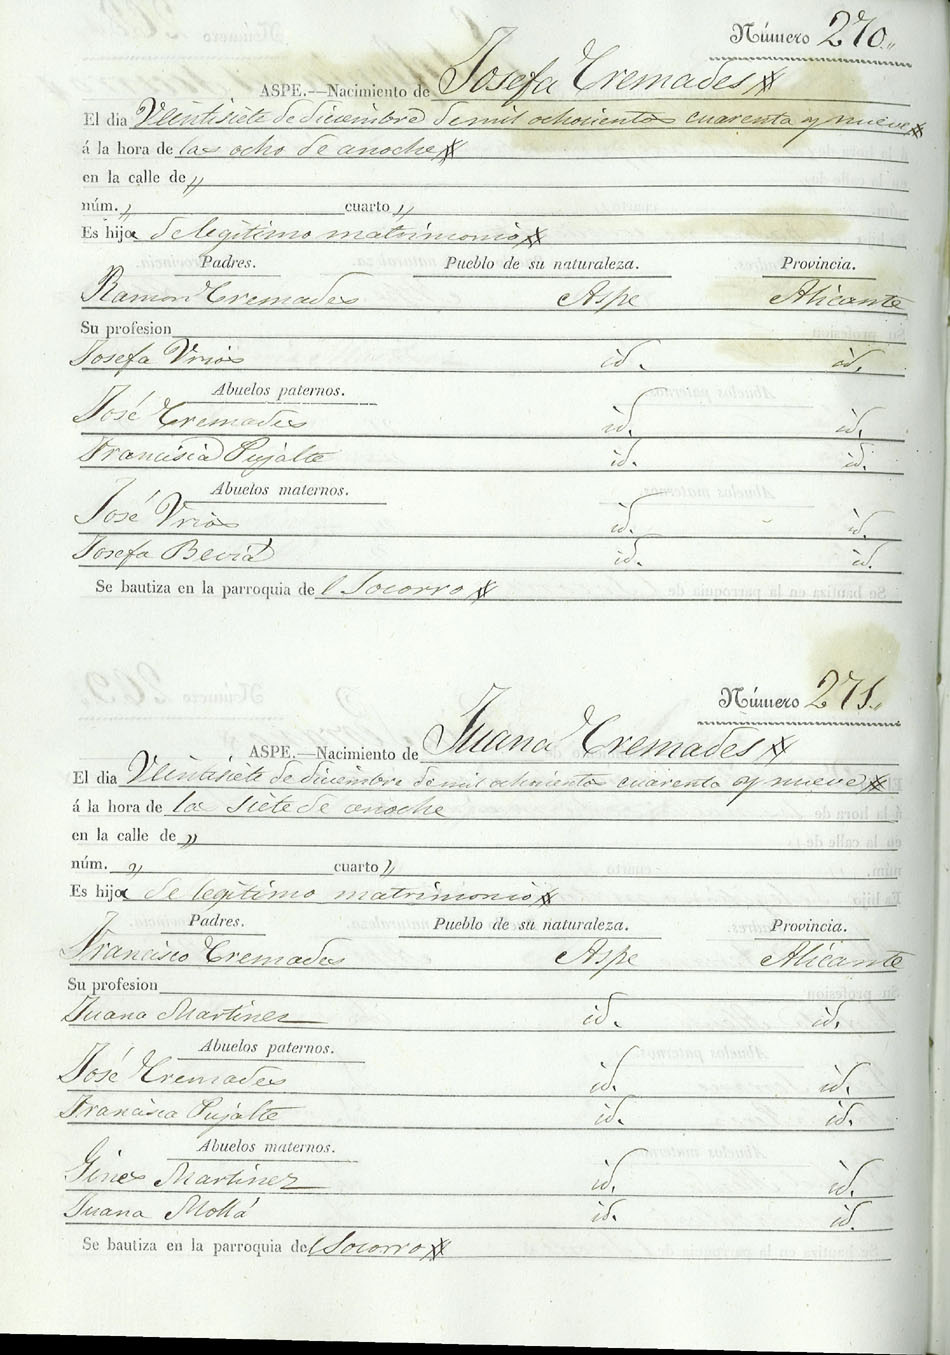 Número 270.
ASPE.—Nacimiento de Josefa Cremades
El dia Veintisiete de diciembre de mil ochocientos cuarenta y nueve
á la hora de las ocho de anoche
en la calle de "
núm. " cuarto "
Es hija de legítimo matrimonio
Padres. Pueblo de su naturaleza. Provincia.
Ramon Cremades Aspe Alicante
Su profesion
Josefa Vrios id. id.
Abuelos paternos.
José Cremades id. id.
Francisca Pujalte id. id.
Abuelos maternos.
José Vrios id. id.
Josefa Beviá id. id.
Se bautiza en la parroquia del Socorro
Número 271.
ASPE.—Nacimiento de Juana Cremades
El dia Veintisiete de diciembre de mil ochocientos cuarenta y nueve
á la hora de la siete de anoche
en la calle de "
núm. " cuarto "
Es hija de legítimo matrimonio
Padres. Pueblo de su naturaleza. Provincia.
Francisco Cremades Aspe Alicante
Su profesion
Juana Martinez id. id.
Abuelos paternos.
José Cremades id. id.
Francisca Pujalte id. id.
Abuelos maternos.
Gines Martinez id. id.
Juana Mollá id. id.
Se bautiza en la parroquia del Socorro